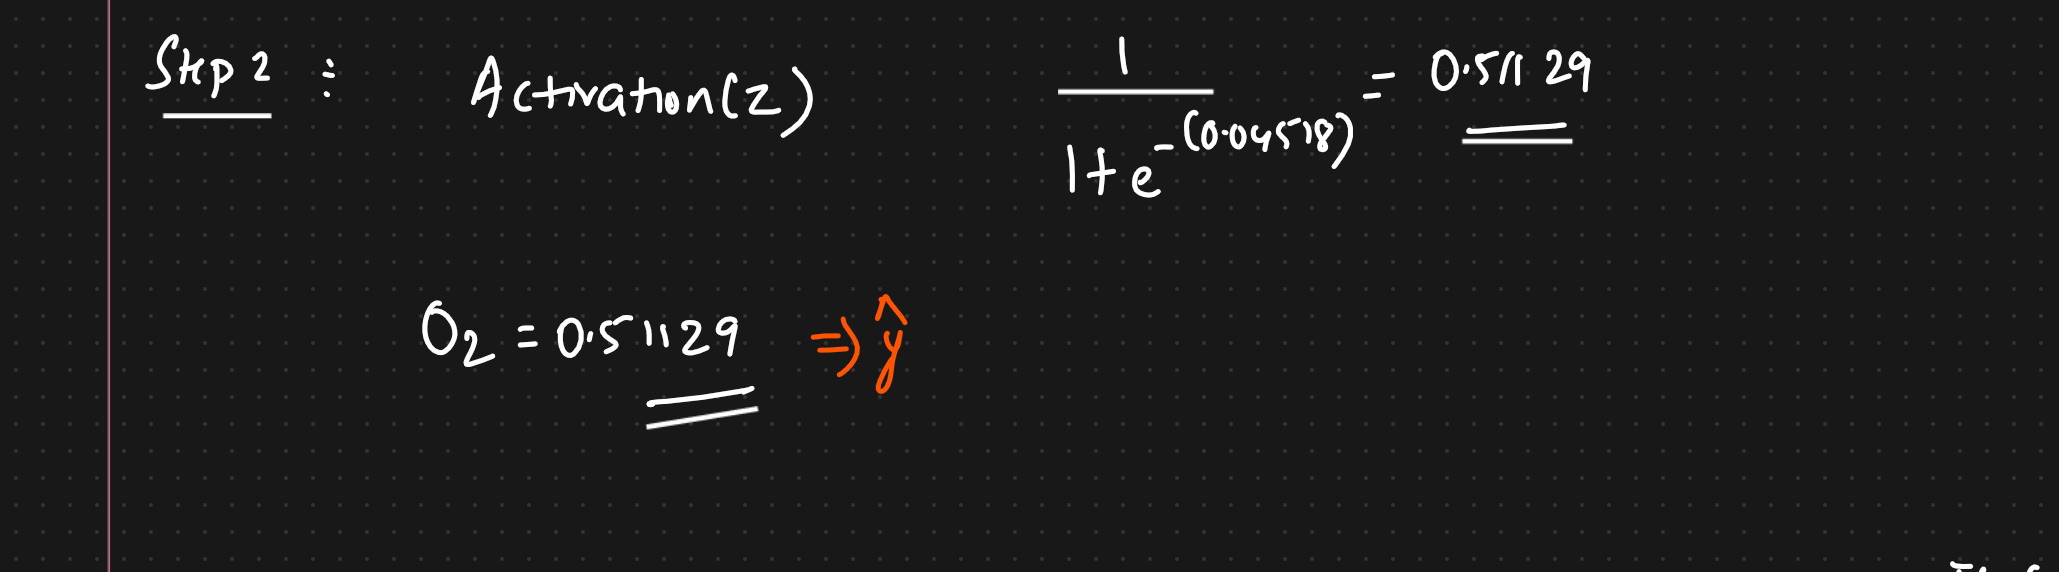 Step 2 :- Activation(z) 1/(1+e^-(0.04518)) = 0.51129
O₂ = 0.51129 ⇒ ŷ